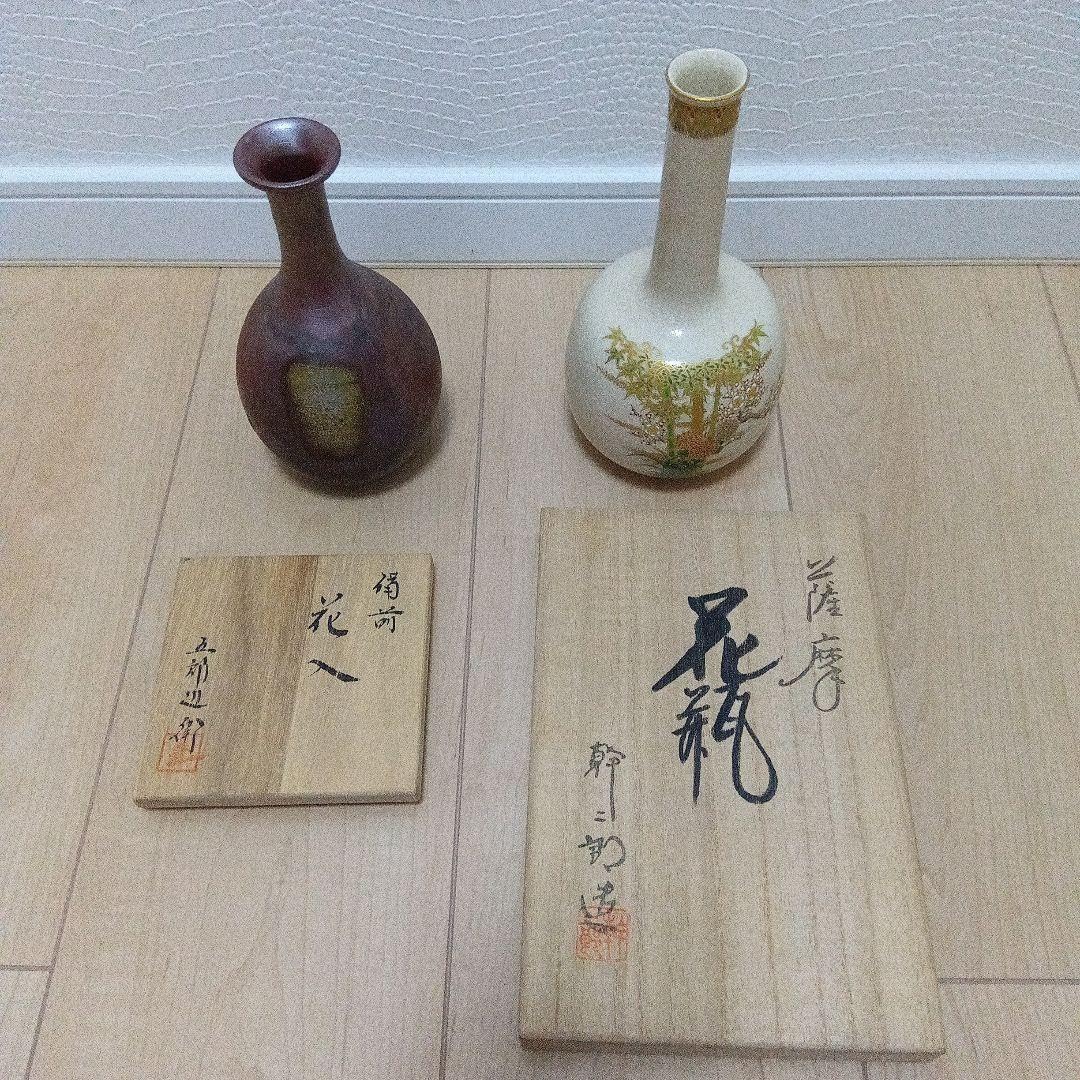 備前
花入
五郎辺衛
薩摩
花瓶
幹二郎造